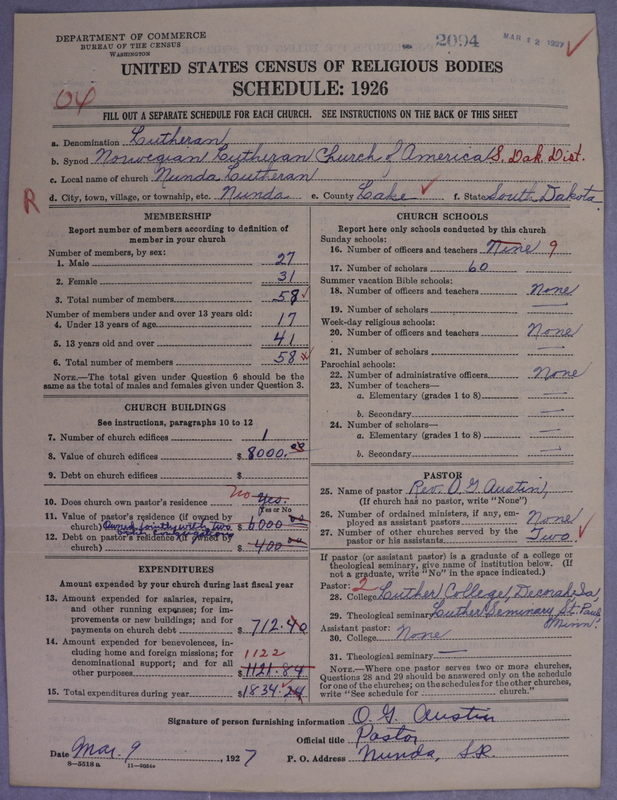 DEPARTMENT OF COMMERCE
BUREAU OF THE CENSUS
WASHINGTON
2094
MAR 12 1927
UNITED STATES CENSUS OF RELIGIOUS BODIES
SCHEDULE: 1926
04
FILL OUT A SEPARATE SCHEDULE FOR EACH CHURCH. SEE INSTRUCTIONS ON THE BACK OF THIS SHEET
a. Denomination Lutheran
b. Synod Norwegian Lutheran Church of America S. Dak. Dist.
c. Local name of church Nunda Lutheran
R
d. City, town, village, or township, etc. Nunda e. County Lake f. State South Dakota
MEMBERSHIP
Report number of members according to definition of member in your church
Number of members, by sex:
1. Male 27
2. Female 31
3. Total number of members 58
Number of members under and over 13 years old:
4. Under 13 years of age 17
5. 13 years old and over 41
6. Total number of members 58
NOTE.—The total given under Question 6 should be the same as the total of males and females given under Question 3.
CHURCH BUILDINGS
See instructions, paragraphs 10 to 12
7. Number of church edifices 1
8. Value of church edifices $ 8000.00
9. Debt on church edifices $
10. Does church own pastor's residence No Yes.
(Yes or No)
11. Value of pastor's residence (if owned by church) Owned jointly with two $ 6000 00
12. Debt on pastor's residence (if owned by church) $ 400 00
EXPENDITURES
Amount expended by your church during last fiscal year
13. Amount expended for salaries, repairs, and other running expenses; for improvements or new buildings; and for payments on church debt $ 712.40
14. Amount expended for benevolences, including home and foreign missions; for denominational support; and for all other purposes 1122 $ 1121.84
15. Total expenditures during year $ 1834.24
CHURCH SCHOOLS
Report here only schools conducted by this church
Sunday schools:
16. Number of officers and teachers Nine 9
17. Number of scholars 60
Summer vacation Bible schools:
18. Number of officers and teachers None
19. Number of scholars —
Week-day religious schools:
20. Number of officers and teachers None
21. Number of scholars —
Parochial schools:
22. Number of administrative officers None
23. Number of teachers—
a. Elementary (grades 1 to 8) —
b. Secondary —
24. Number of scholars—
a. Elementary (grades 1 to 8) —
b. Secondary —
PASTOR
25. Name of pastor Rev. O. G. Austin,
(If church has no pastor, write "None")
26. Number of ordained ministers, if any, employed as assistant pastors None
27. Number of other churches served by the pastor or his assistants Two
If pastor (or assistant pastor) is a graduate of a college or theological seminary, give name of institution below. (If not a graduate, write "No" in the space indicated.)
Pastor: 2
28. College Luther College, Decorah Ia,
29. Theological seminary Luther Seminary St. Paul Minn.
Assistant pastor:
30. College None
31. Theological seminary —
NOTE.—Where one pastor serves two or more churches, Questions 28 and 29 should be answered only on the schedule for one of the churches; on the schedules for the other churches, write "See schedule for church."
Signature of person furnishing information O. G. Austin
Official title Pastor
Date Mar. 9, 1927 P. O. Address Nunda, S.D.
8—5518 a 11—9054a